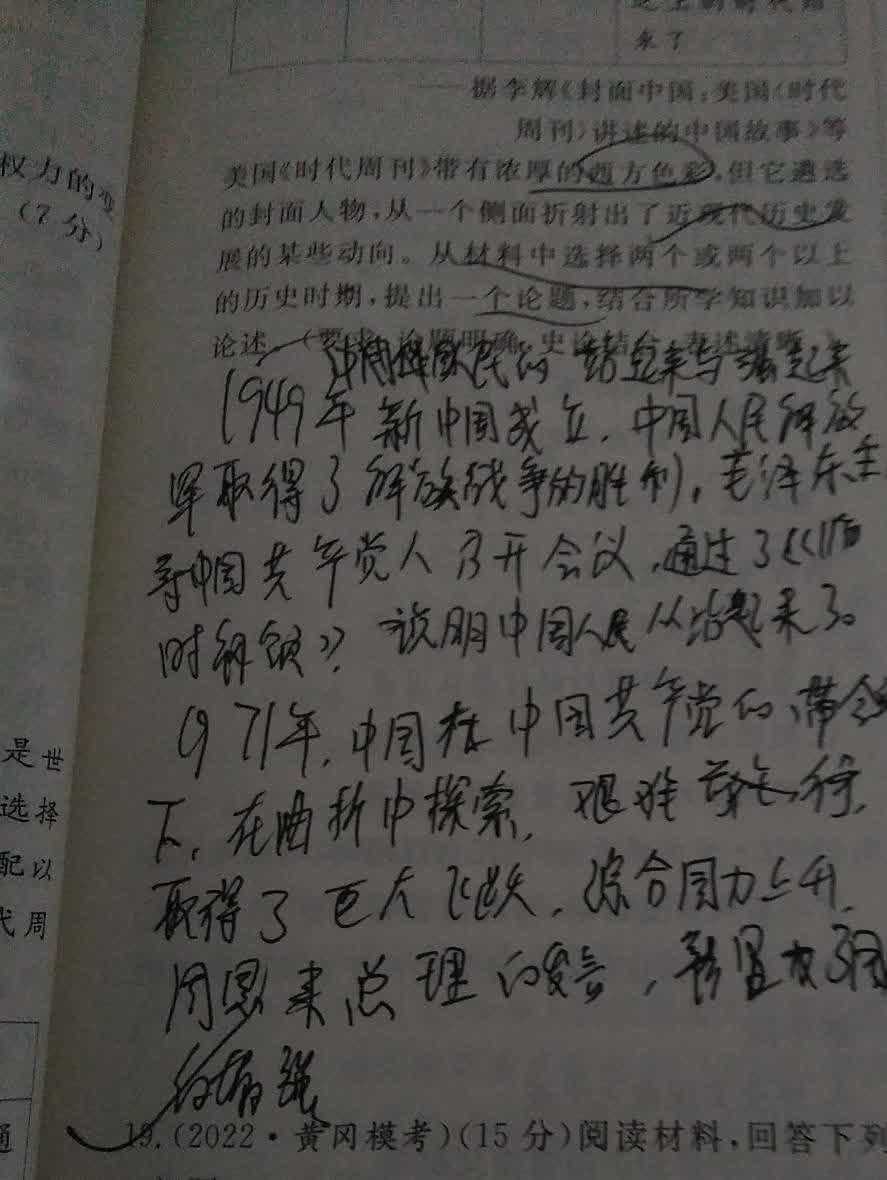 来了
——据李辉《封面中国:美国〈时代
周刊〉讲述的中国故事》等
美国《时代周刊》带有浓厚的西方色彩,但它遴选
的封面人物,从一个侧面折射出了近现代历史发
展的某些动向。从材料中选择两个或两个以上
的历史时期,提出一个论题,结合所学知识加以
论述。(要求:论题明确,史论结合,表述清晰。)
站起来与强起来
1949年新中国成立,中国人民解放
军取得了解放战争的胜利,毛泽东主
中国共产党人召开会议,通过了
时纲领》,说明中国人民从站起来了。
1971年,中国在中国共产党的带领
下,在曲折中探索,艰难前行,
取得了巨大飞跃,综合国力上升,
周恩来总理的发言,彰显
19.(2022·黄冈模考)(15分)阅读材料,回答下列
权力的变
(7分)
是世
选择
配以
代周
通